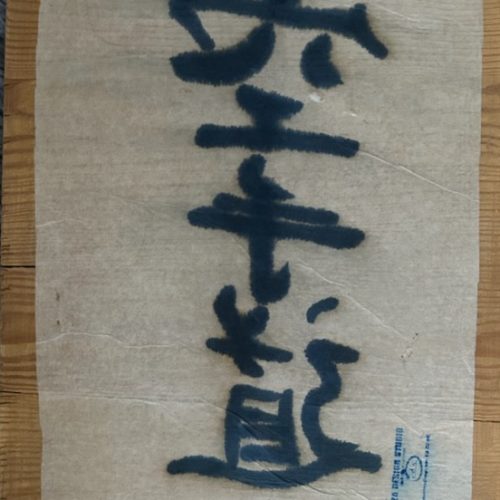 空手道
DESIGN STUDIO